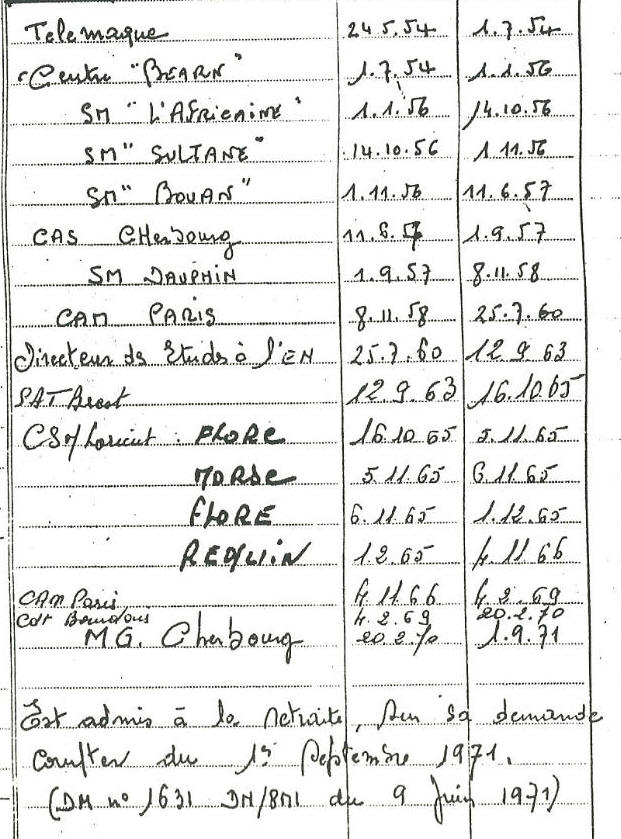 Telemaque 24.5.54 1.7.54
Centre "BEARN" 1.7.54 1.1.56
SM "L'AFRICAINE" 1.1.56 14.10.56
SM "SULTANE" 14.10.56 1.11.56
SM "BOUAN" 1.11.56 11.6.57
CAS CHerbourg 11.6.57 1.9.57
SM DAUPHIN 1.9.57 8.11.58
CAM PARIS 8.11.58 25.7.60
Directeur des Etudes à l'EN 25.7.60 12.9.63
SAT Brest 12.9.63 16.10.65
CSM Lorient : FLORE 16.10.65 5.11.65
MORSE 5.11.65 6.11.65
FLORE 6.11.65 1.12.65
REQUIN 1.2.65 4.11.66
CAM Paris 4.11.66 4.2.69
Cdt Bourdais 4.2.69 20.2.70
M.G. Cherbourg 20.2.70 1.9.71
Est admis à la retraite, sur sa demande
compter du 1er Septembre 1971.
(DM n° 1631 DN/8M1 du 9 Juin 1971)